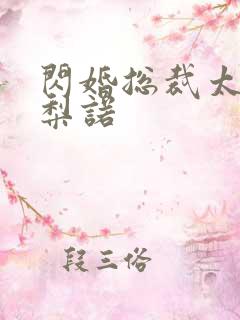 閃婚总裁太
梨諾
段三俗